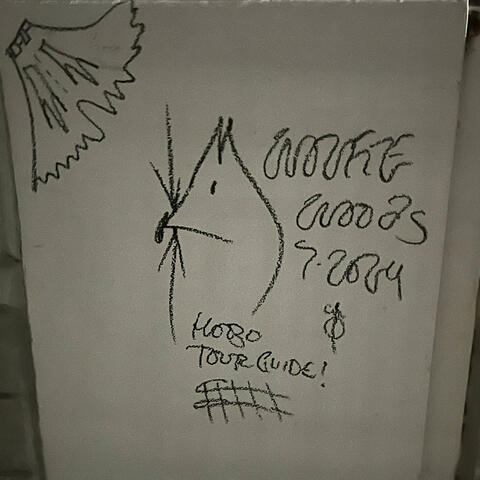 WOOKIE
WOODS
7.2024
HOBO
TOUR GUIDE!